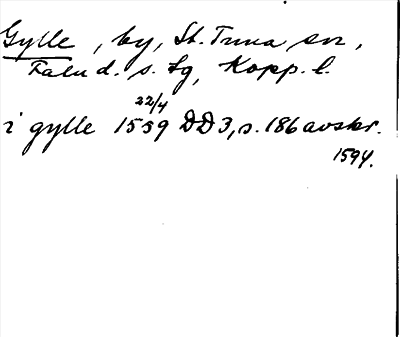 Gylle, by, St. Tuna sn,
Falu d. s. lg, Kopp. l.
22/4
i gylle 1559 DD3, s. 186 avskr.
1594.